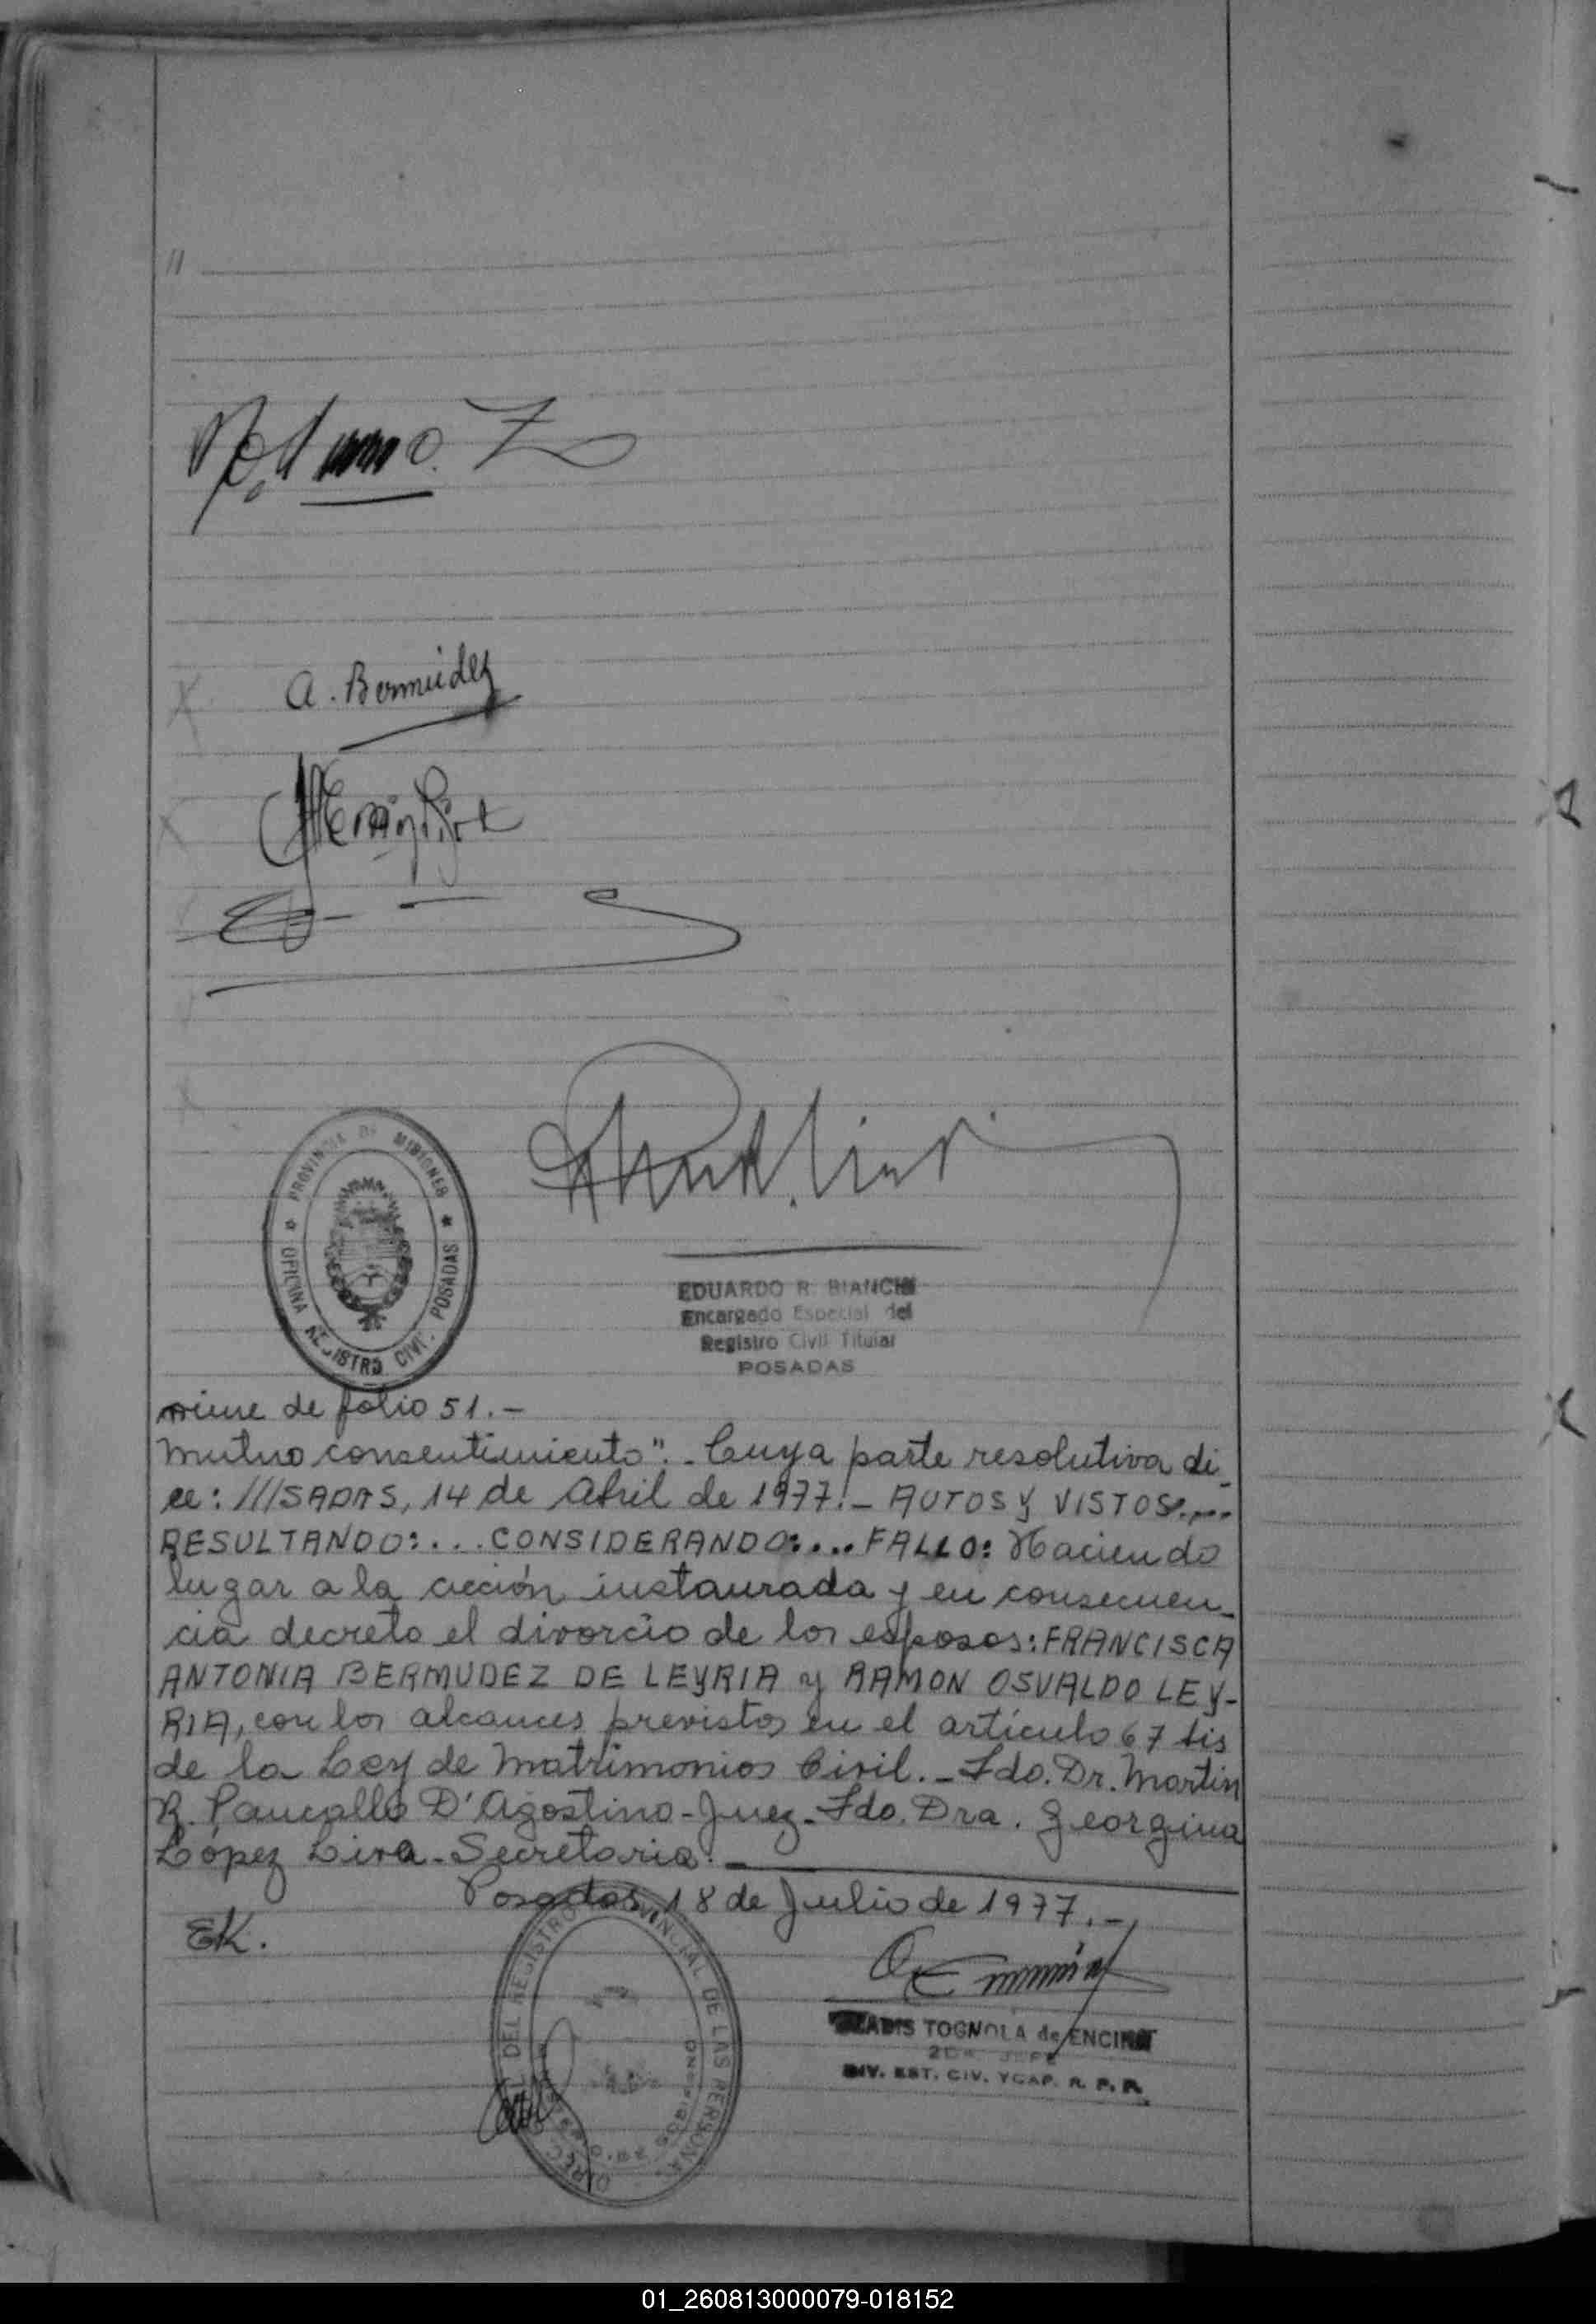 //
A. Bermúdez
PROVINCIA DE MISIONES
OFICINA REGISTRO CIVIL POSADAS
EDUARDO R. BIANCHI
Encargado Especial del
Registro Civil Titular
POSADAS
viene de folio 51.-
mutuo consentimiento".- Cuya parte resolutiva di-
ce: ///SADAS, 14 de Abril de 1977.- AUTOS Y VISTOS:....
RESULTANDO:... CONSIDERANDO:... FALLO: Haciendo
lugar a la acción instaurada y en consecuen-
cia decreto el divorcio de los esposos: FRANCISCA
ANTONIA BERMUDEZ DE LEYRIA y RAMON OSVALDO LEY-
RIA, con los alcances previstos en el artículo 67 bis
de la Ley de Matrimonios Civil.- Fdo. Dr. Martin
R. D'Agostino-Juez- Fdo. Dra. Georgina
López Liva-Secretaria.-
Posadas, 18 de Julio de 1977.-
EK.
DEL REGISTRO PROVINCIAL DE LAS PERSONAS
TOGNOLA de ENCINA
2DA. JEFE
DIV. EST. CIV. YCAP. R. P. P.
01_260813000079-018152